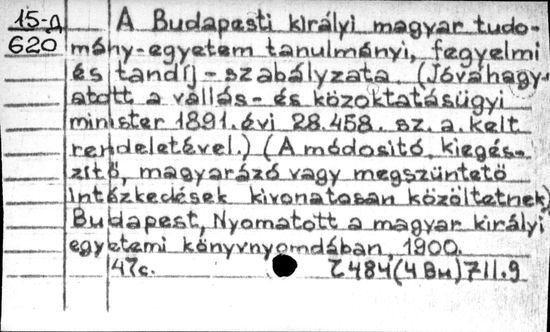 15-Д
620
A Budapesti királyi magyar tudo-
mány-egyetem tanulmányi, fegyelmi
és tandíj-szabályzata. (Jóváhagy-
atott a vallás- és közoktatásügyi
minister 1891. évi 28.458. sz. a. kelt
rendeletével.) (A módosító, kiegés-
zítő, magyarázó vagy megszüntető
intézkedések kivonatosan közöltetnek)
Budapest, Nyomatott a magyar királyi
egyetemi könyvnyomdában, 1900.
47c. Z484(4Вн)711.9